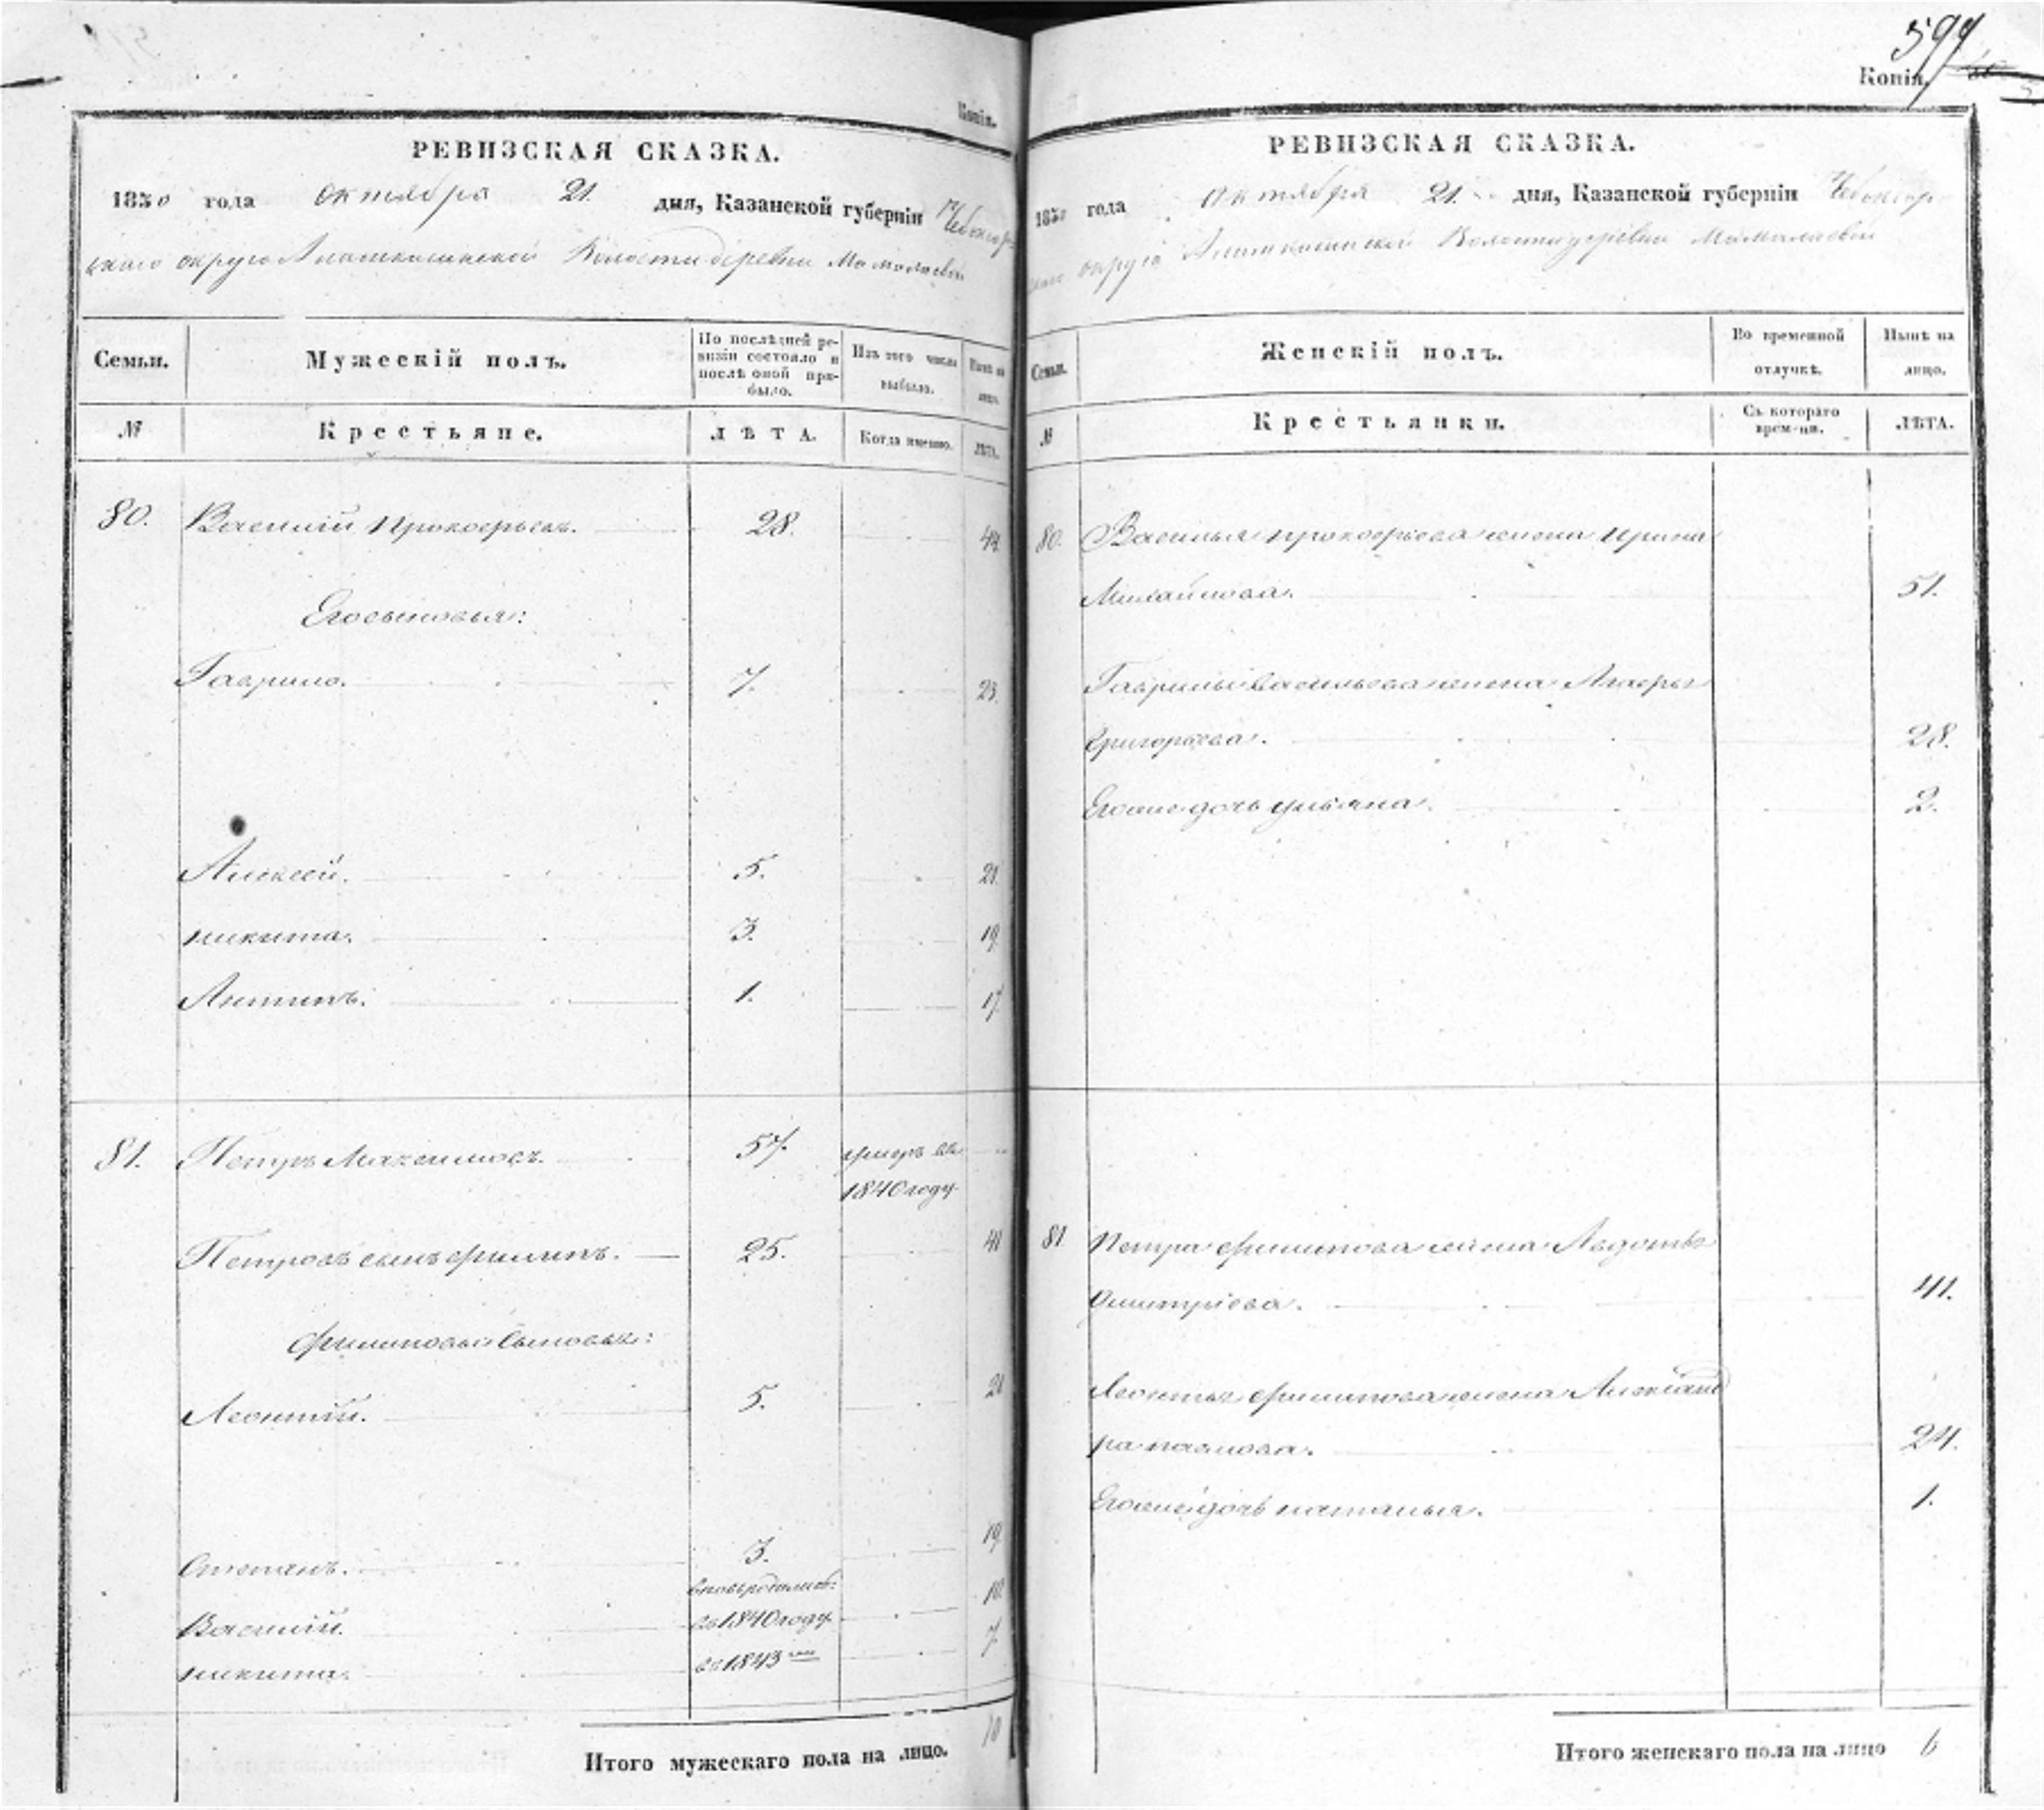 Копія.
РЕВИЗСКАЯ СКАЗКА.
1850 года октября 21. дня, Казанской губерніи Чебоксар-
скаго округа волости деревни
Семьи.
Мужескій полъ.
По послѣдней ре-
визіи состояло и
послѣ оной при-
было.
Изъ того числа
выбыло.
Нынѣ на
лицо.
№
Крестьяне.
ЛѢТА.
Когда именно.
ЛѢТА.
80. Василій Прокофьевъ. 28. 44.
Его сыновья:
Гаврило. 7. 23.
Алексей. 5. 21.
никита. 3. 19.
Антипъ. 1. 17.
81. Петръ Максимовъ. 57. умеръ въ
1840 году
Петровъ сынъ филипъ. 25. 41
филиповы сыновья:
Леонтій. 5. 21
Степанъ. 3. 19.
вновьрожденъ.
Василий въ 1840 году 10.
никита. въ 1843 7.
Итого мужескаго пола на лицо. 10
594
Копія.
РЕВИЗСКАЯ СКАЗКА.
1850 года октября 21. дня, Казанской губерніи Чебоксар-
скаго округа волости деревни
Семьи.
Женскій полъ.
Во временной
отлучкѣ.
Нынѣ на
лицо.
№
Крестьянки.
Съ котораго
времени.
ЛѢТА.
80. Василья прокофьева жена Ирина
Михайлова. 51.
Гаврилы васильева жена
Григорьева. 28.
Егоже дочь ульяна. 2.
81 Петра филипова жена Авдотья
Дмитріева. 41.
Леонтья филипова жена Александ
ра павлова. 24.
Егоже дочь наталья. 1.
Итого женскаго пола на лицо 6